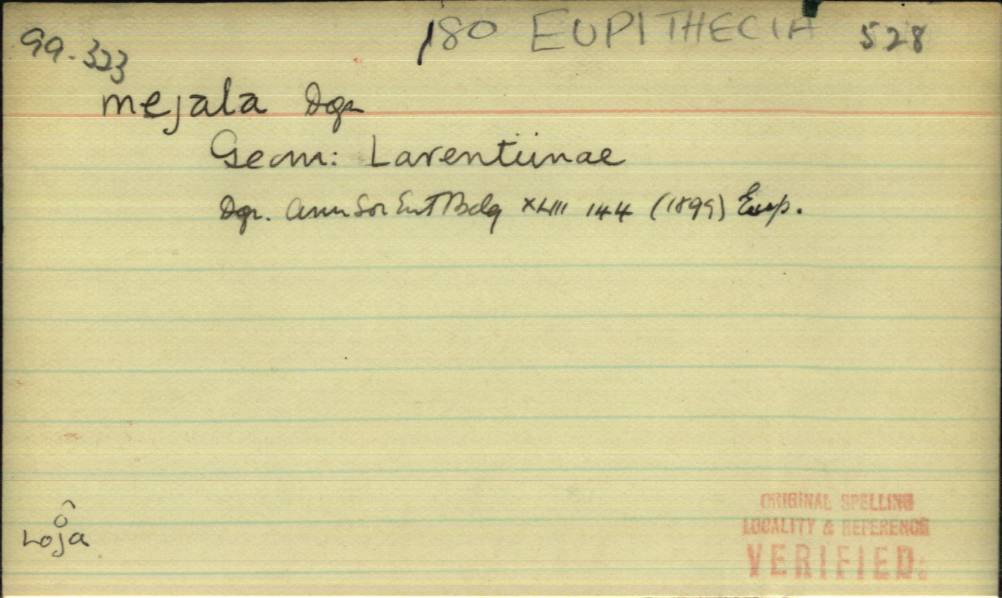 99-323
180 EUPITHECIA 528
mejala Dgn
Geom: Larentiinae
Dgn. Ann Soc Ent Belg XLIII 144 (1899) Eup.
Loja
ORIGINAL SPELLING
LOCALITY & REFERENCE
VERIFIED: